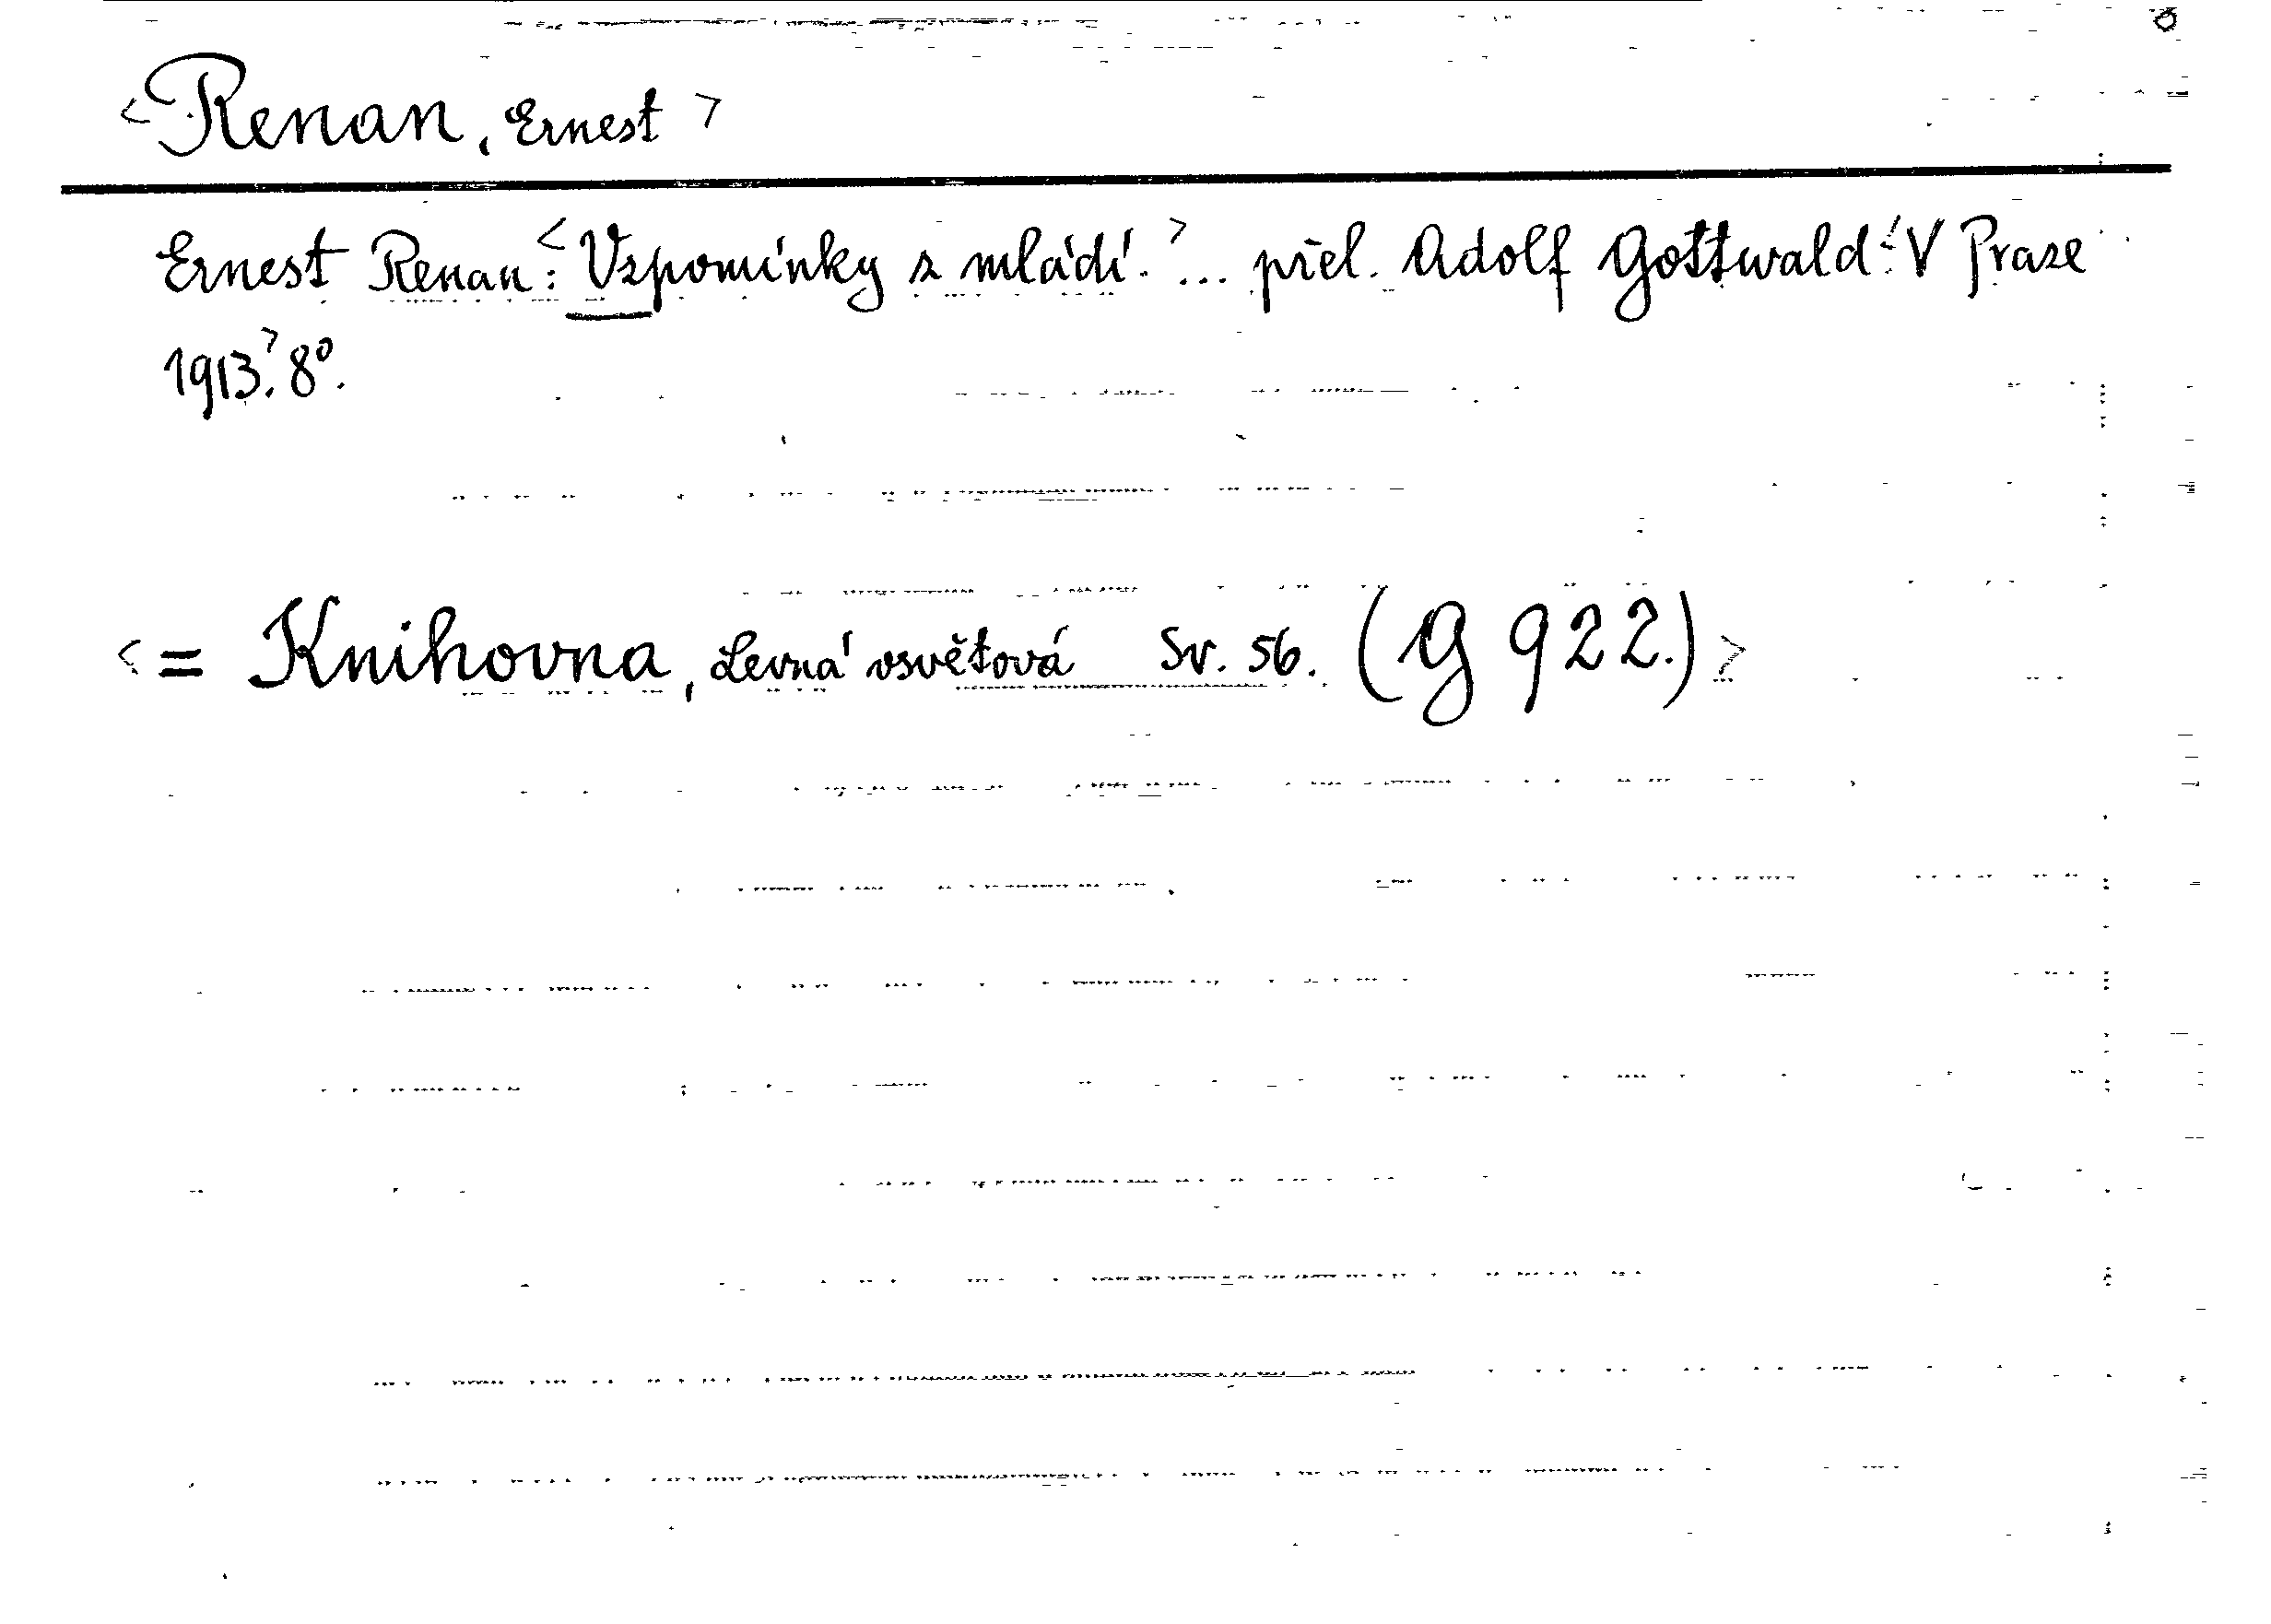 <Renan, Ernest>
Ernest Renan: <Vzpomínky z mládí.> ... přel. Adolf Gottwald. <V Praze
1913.> 8°.
<= Knihovna, Levná osvětová Sv. 56. (G 922.)>